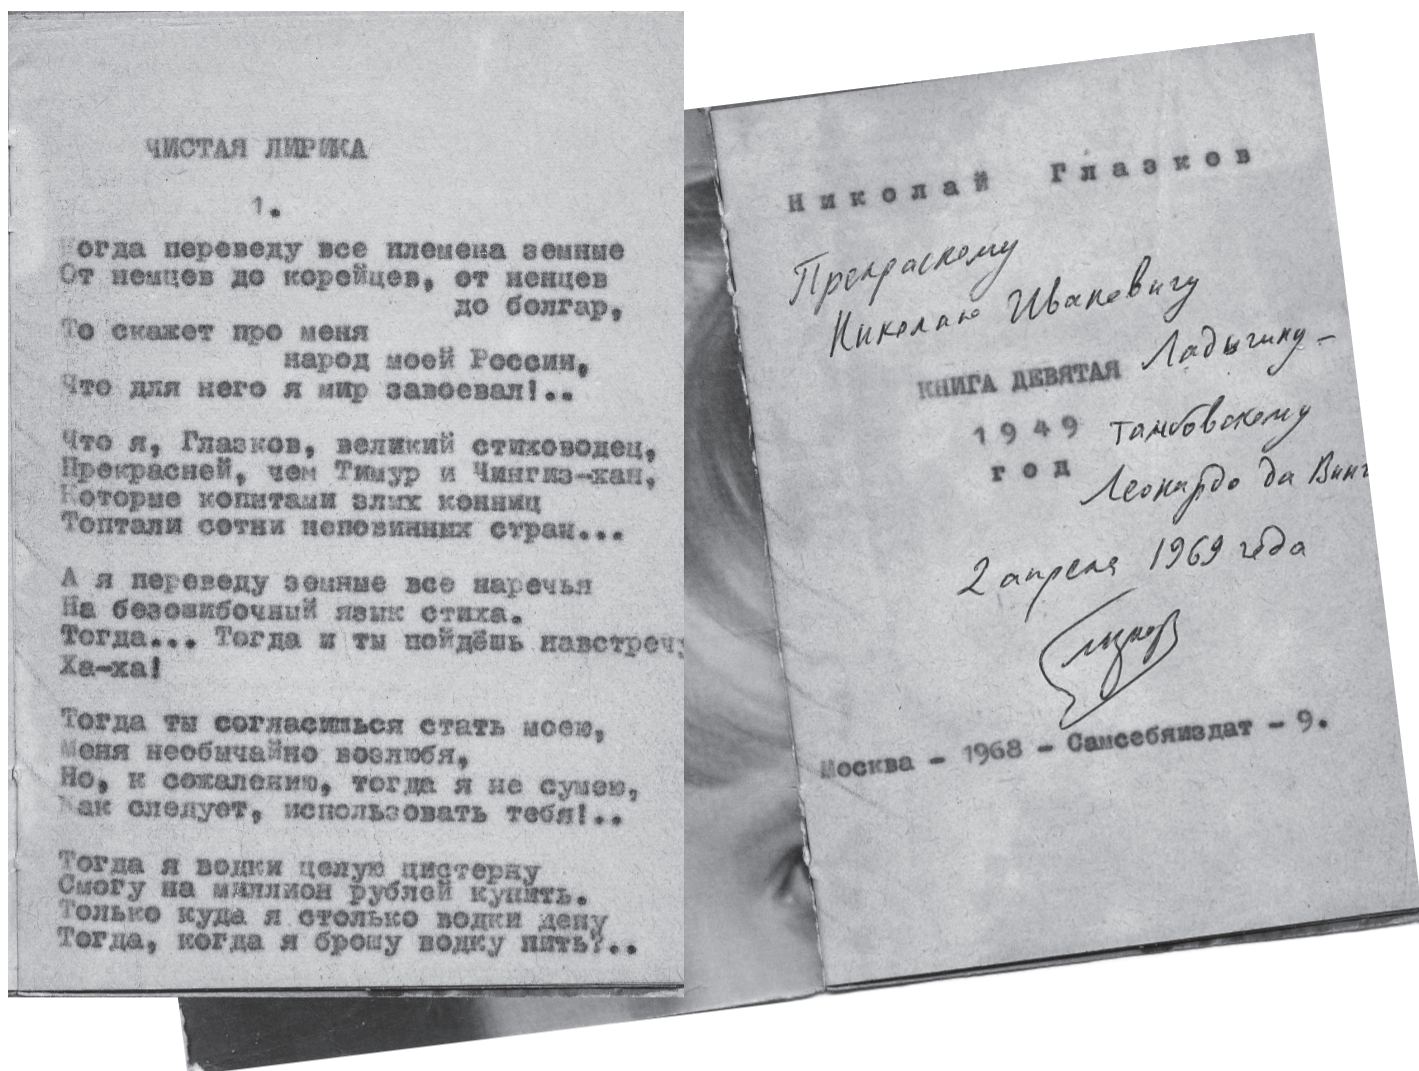 ЧИСТАЯ ЛИРИКА
1.
Когда переведу все племена земные
От немцев до корейцев, от ненцев
до болгар,
То скажет про меня
народ моей России,
Что для него я мир завоевал!..
Что я, Глазков, великий стиховодец,
Прекрасней, чем Тимур и Чингиз-хан,
Которые копытами злых конниц
Топтали сотни неповинных стран...
А я переведу земные все наречья
На безошибочный язык стиха.
Тогда... Тогда и ты пойдёшь навстречу
Ха-ха!
Тогда ты согласишься стать моею,
Меня необычайно возлюбя,
Но, к сожалению, тогда я не сумею,
Как следует, использовать тебя!..
Тогда я водки целую цистерну
Смогу на миллион рублей купить.
Только куда я столько водки дену
Тогда, когда я брошу водку пить?..
Николай Глазков
Прекрасному
Николаю Ивановичу
Ладыгину –
КНИГА ДЕВЯТАЯ
1949 тамбовскому
год
Леонардо да Винч
2 апреля 1969 года
Глазков
Москва – 1968 – Самсебяиздат – 9.